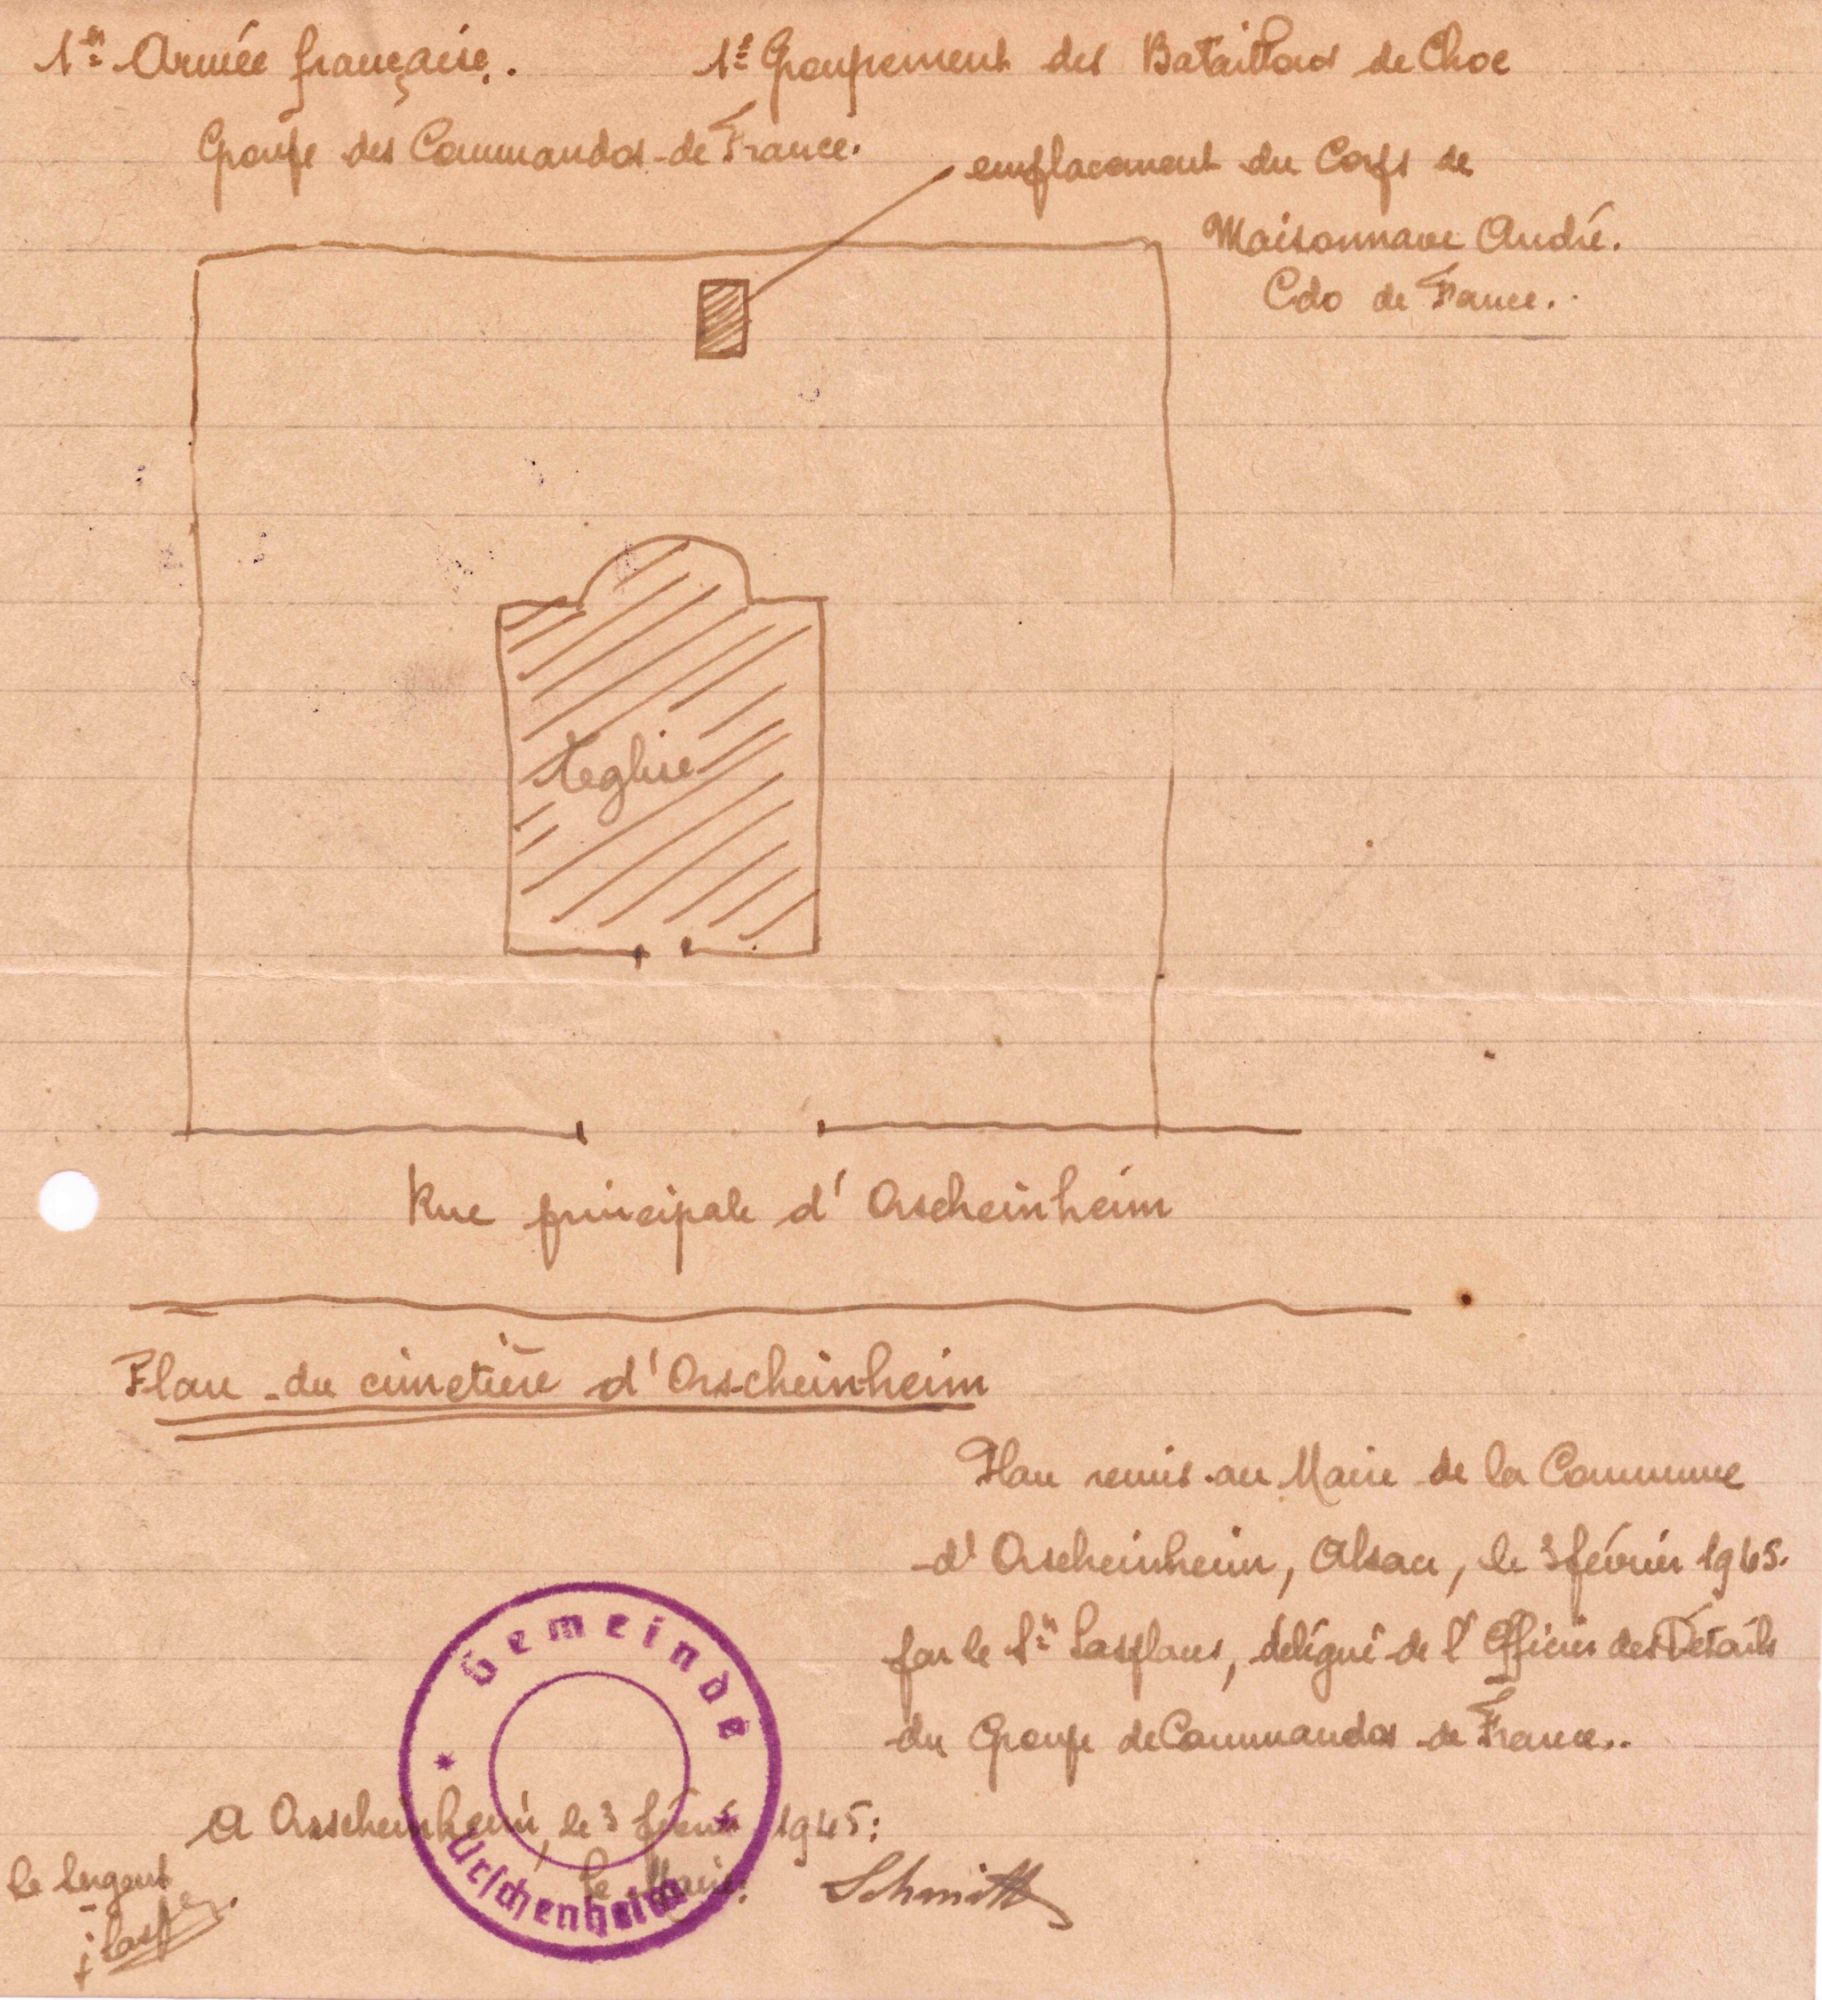 1ère Armée française.
1er Groupement des Bataillons de Choc
Groupe des Commandos de France.
emplacement du Corps de
Maisonnave André.
Cdo de France.
l'église
Rue principale d'Orscheinheim
Plan du cimetière d'Orscheinheim
Plan remis au Maire de la Commune
d'Orscheinheim, Alsace, le 3 février 1945.
par le Sgt Lasplaces, délégué de l'Officier des Détails
du Groupe de Commandos de France.
A Orscheinheim, le 3 février 1945:
Le Sergent
Le Maire:
Schmitt
Gemeinde
Urschenheim